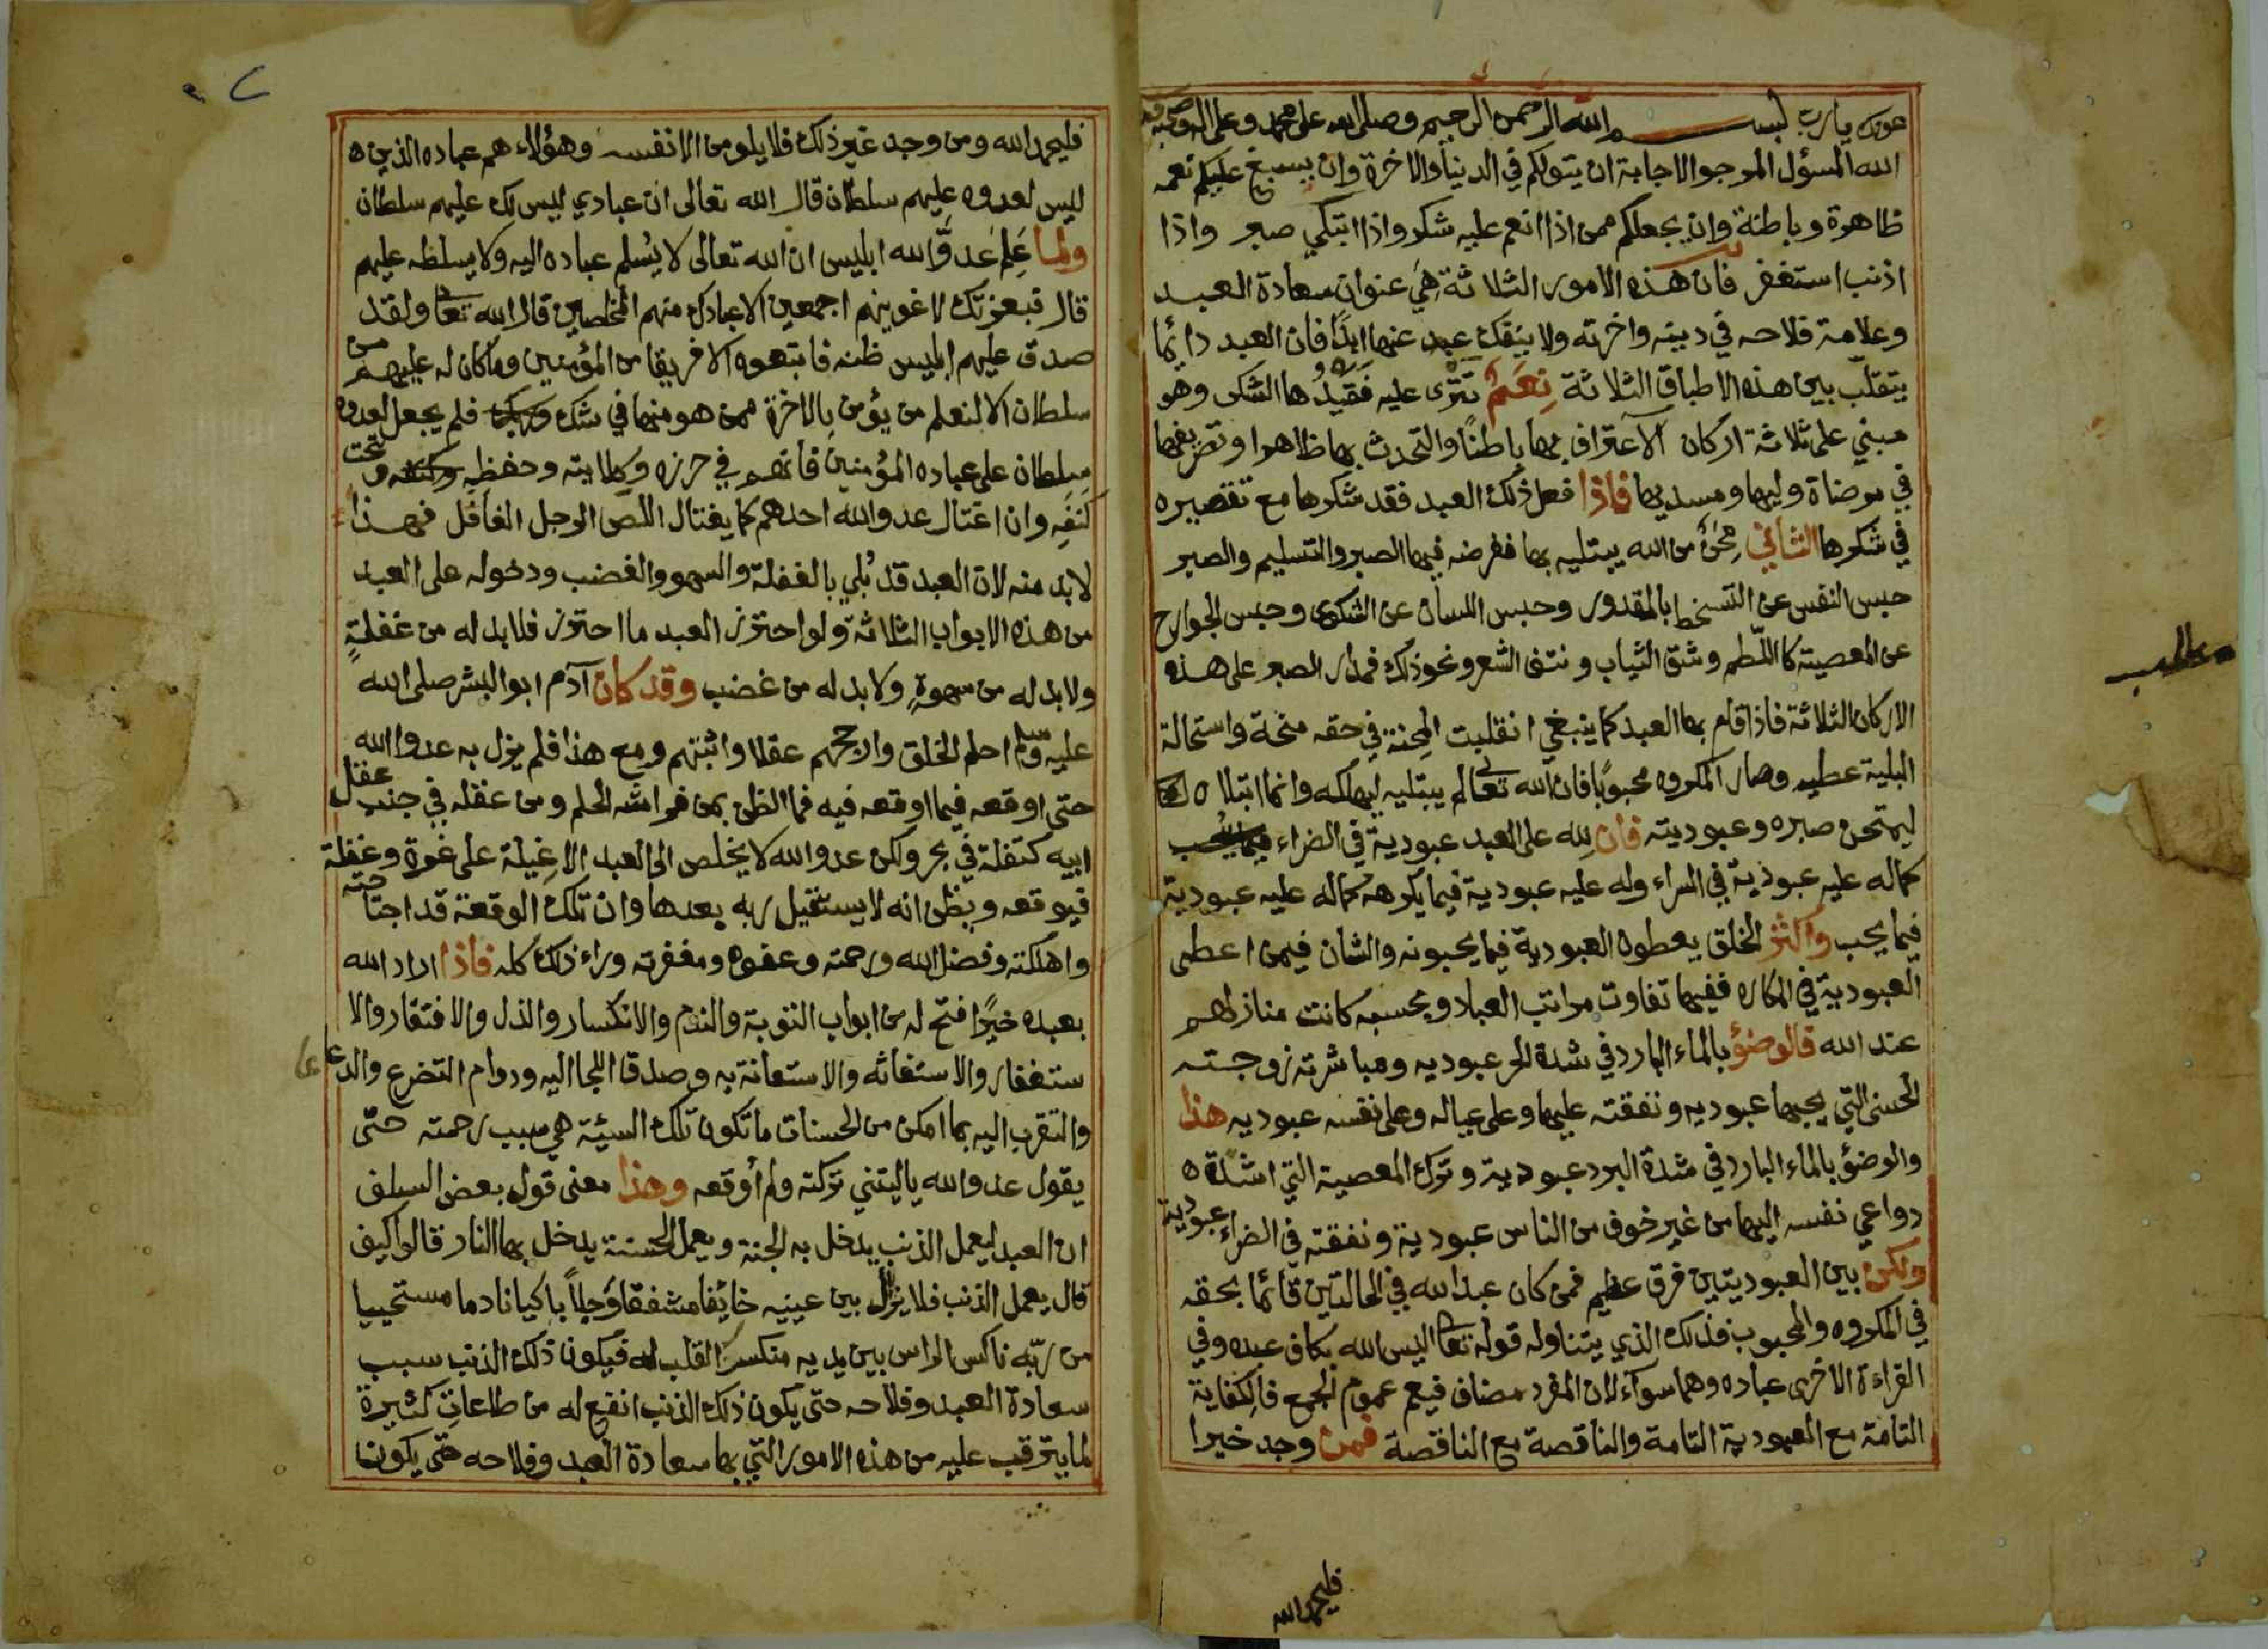 عونك يارب بسم الله الرحمن الرحيم وصلى الله على محمد وعلى اله وصحبه
الله المسؤل المرجو الاجابة ان يتولكم في الدنيا والاخرة وان يسبغ عليكم نعمه
ظاهرة وباطنة وان يجعلكم ممن اذا انعم عليه شكر واذا ابتلي صبر واذا
اذنب استغفر فان هذه الامور الثلاثة هي عنوان سعادة العبد
وعلامة فلاحه في دينه واخرته ولا ينفك عبد عنها ابدًا فان العبد دائما
يتقلب بين هذه الاطباق الثلاثة نعم تترى عليه فقيدها الشكر وهو
مبني على ثلاثة اركان الاعتراف بها باطنًا والتحدث بها ظاهرا وتصريفها
في مرضاة وليها ومسديها فاذا فعل ذلك العبد فقد شكرها مع تقصيره
في شكرها الثاني محن من الله يبتليه بها ففرضه فيها الصبر والتسليم والصبر
حبس النفس عن التسخط بالمقدور وحبس اللسان عن الشكوى وحبس الجوارح
عن المعصية كاللطم وشق الثياب ونتف الشعر ونحو ذلك فمدار الصبر على هذه
الاركان الثلاثة فاذا قام بها العبد كما ينبغي انقلبت المحنة في حقه منحة واستحالة
البلية عطيه وصار المكروه محبوبًا فان الله تعالى لم يبتليه ليهلكه وانما ابتلاه
ليمتحن صبره وعبوديته فان لله على العبد عبودية في الضراء
كماله عليه عبودية في السراء وله عليه عبودية فيما يكرهه كماله عليه عبودية
فيما يحب واكثر الخلق يعطون العبودية فيما يحبونه والشان فيمن اعطى
العبودية في المكاره ففيها تفاوت مراتب العباد وبحسبه كانت منازلهم
عند الله فالوضؤ بالماء البارد في شدة الحر عبوديه ومباشرته زوجته
الحسنى التي يحبها عبوديه ونفقته عليها وعلى عياله وعلى نفسه عبوديه هذا
والوضؤ بالماء البارد في شدة البرد عبودية وترك المعصية التي اشتدة
دواعي نفسه اليها من غير خوف من الناس عبودية ونفقته في الضراء عبودية
ولكن بين العبوديتين فرق عظيم فمن كان عبد الله في الحالتين قائما بحقه
في المكروه والمحبوب فذلك الذي يتناوله قوله تعالى اليس الله بكاف عبده وفي
القراءة الاخرى عباده وهما سواء لان المفرد مضاف فيعم عموم الجمع فالكفاية
التامة مع العبودية التامة والناقصة مع الناقصة فمن وجد خيرا
فليحمد الله
مطلب
فليحمد الله ومن وجد غير ذلك فلا يلومن الا نفسه وهؤلاء هم عباده الذين
ليس لعدوه عليهم سلطان قال الله تعالى ان عبادي ليس لك عليهم سلطان
ولما علم عدو الله ابليس ان الله تعالى لا يسلم عباده اليه ولا يسلطه عليهم
قال فبعزتك لاغوينهم اجمعين الا عبادك منهم المخلصين قال الله تعالى ولقد
صدق عليهم ابليس ظنه فاتبعوه الا فريقا من المؤمنين وماكان له عليهم من
سلطان الا لنعلم من يؤمن بالاخرة ممن هو منها في شك فلم يجعل لعدوه
سلطان على عباده المؤمنين فانهم في حرزه وكلايته وحفظه وتحت
كنفه وان اغتال عدو الله احدهم كما يغتال اللص الرجل الغافل فهذا
لا بد منه لان العبد قد بلي بالغفلة والسهو والغضب ودخوله على العبد
من هذه الابواب الثلاثة ولو احترز العبد ما احترز فلا بد له من غفلةٍ
ولا بد له من سهوةٍ ولا بد له من غضب وقد كان آدم ابو البشر صلى الله
عليه وسلم احلم الخلق وارجحهم عقلا واثبتهم ومع هذا فلم يزل به عدو الله
حتى اوقعه فيما اوقعه فيه فما الظن بمن فراشه الحلم ومن عقله في جنب عقل
ابيه كتفلة في بحر ولكن عدو الله لا يخلص الى العبد الا غيلة على غرة وغفلة
فيوقعه ويظن انه لا يستقيل ربه بعدها وان تلك الوقعة قد اجتاحته
واهلكته وفضل الله ورحمته وعفوه ومغفرته وراء ذلك كله فاذا اراد الله
بعبده خيرًا فتح له من ابواب التوبة والندم والانكسار والذل والافتقار والا
ستغفار والاستغاثه والاستعانة به وصدق اللجا اليه ودوام التضرع والدعا
والتقرب اليه بما امكن من الحسنات ما تكون تلك السيئة هي سبب رحمته حتى
يقول عدو الله ياليتني تركته ولم أوقعه وهذا معنى قول بعض السلف
ان العبد ليعمل الذنب يدخل به الجنة ويعمل الحسنة يدخل بها النار قالوا كيف
قال يعمل الذنب فلا يزال بين عينيه خائفا مشفقا وجلاً باكيا نادما مستحييا
من ربه ناكس الراس بين يديه منكسر القلب له فيكون ذلك الذنب سبب
سعادة العبد وفلاحه حتى يكون ذلك الذنب انفع له من طاعات كثيرة
لما يترقب عليه من هذه الامور التي بها سعادة العبد وفلاحه حتى يكون